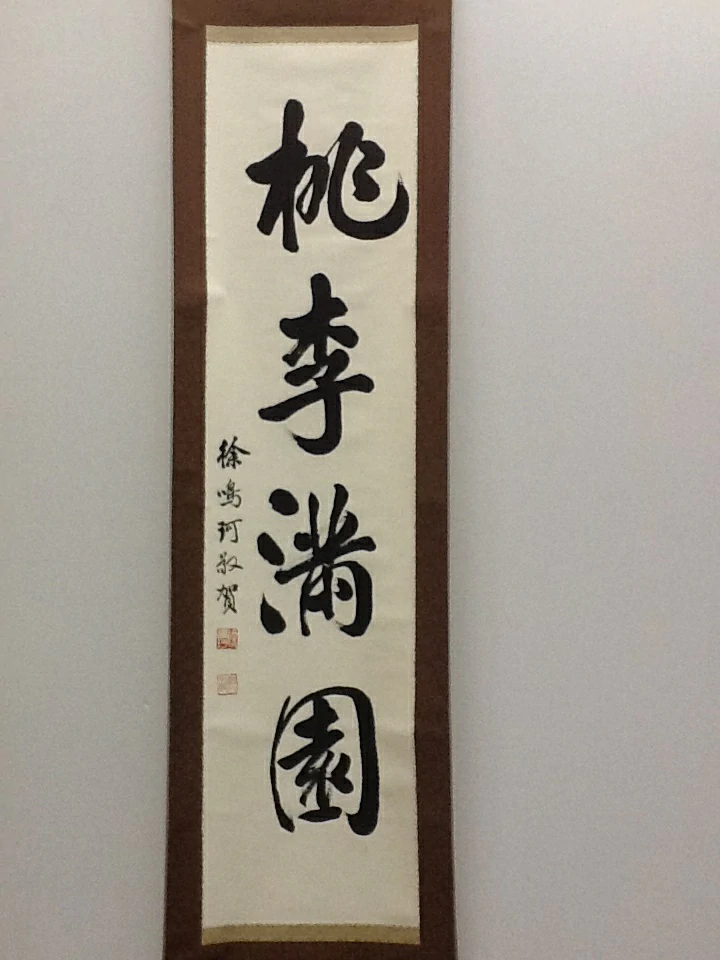 桃李滿園
徐鳴珂敬賀